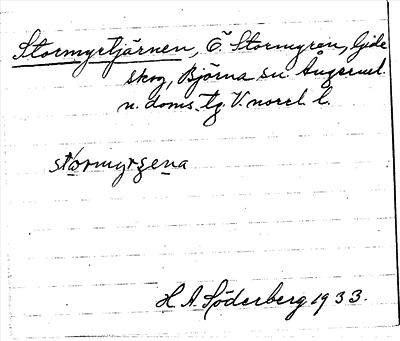 Stormyrtjärnen, Ö. Stormyrån, Gide
skog, Björna sn. Ångerml.
n. doms. tg. V. norrl. l.
stormyrʒena
H. A. Söderberg 1933.